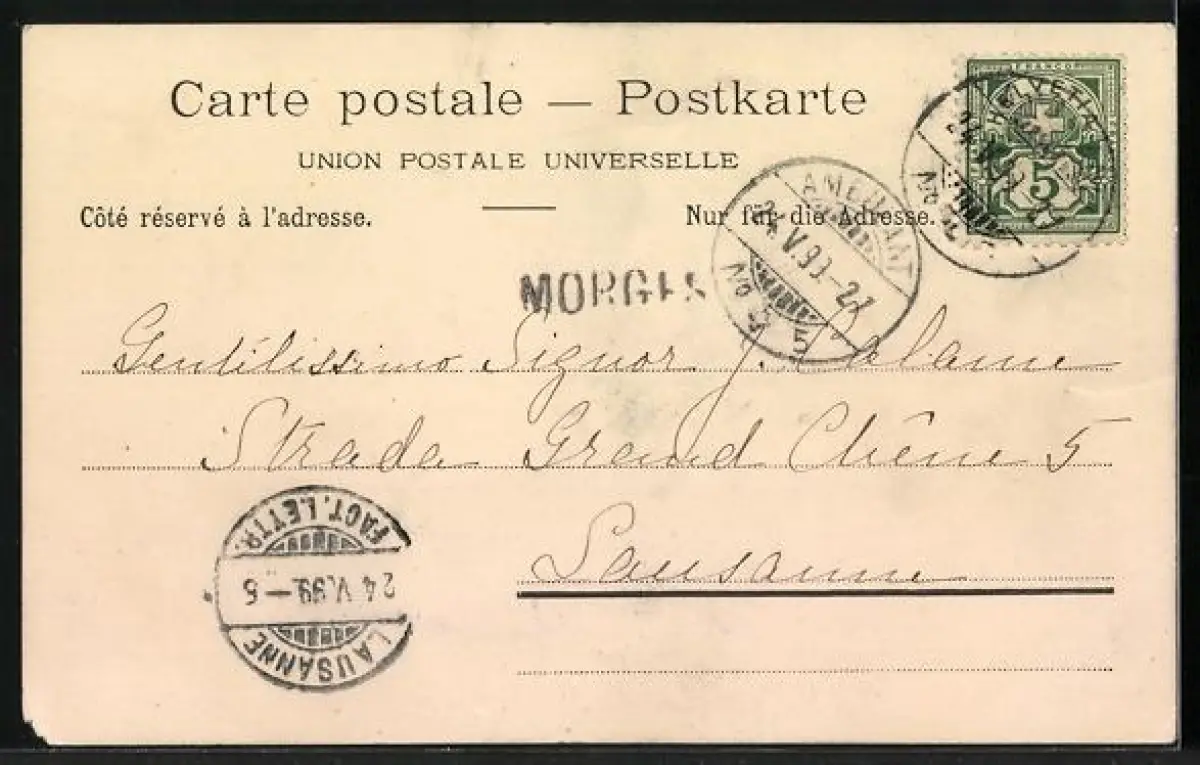 Carte postale — Postkarte
UNION POSTALE UNIVERSELLE
Côté réservé à l'adresse.
Nur für die Adresse.
FRANCO
HELVETIA
5
AMBULANT
24.V.99
No
MORGES
Gentilissimo Signor J. Calame
Strada Grand Chêne 5
Lausanne
FACT. LETTR.
24.V.99.-6
LAUSANNE